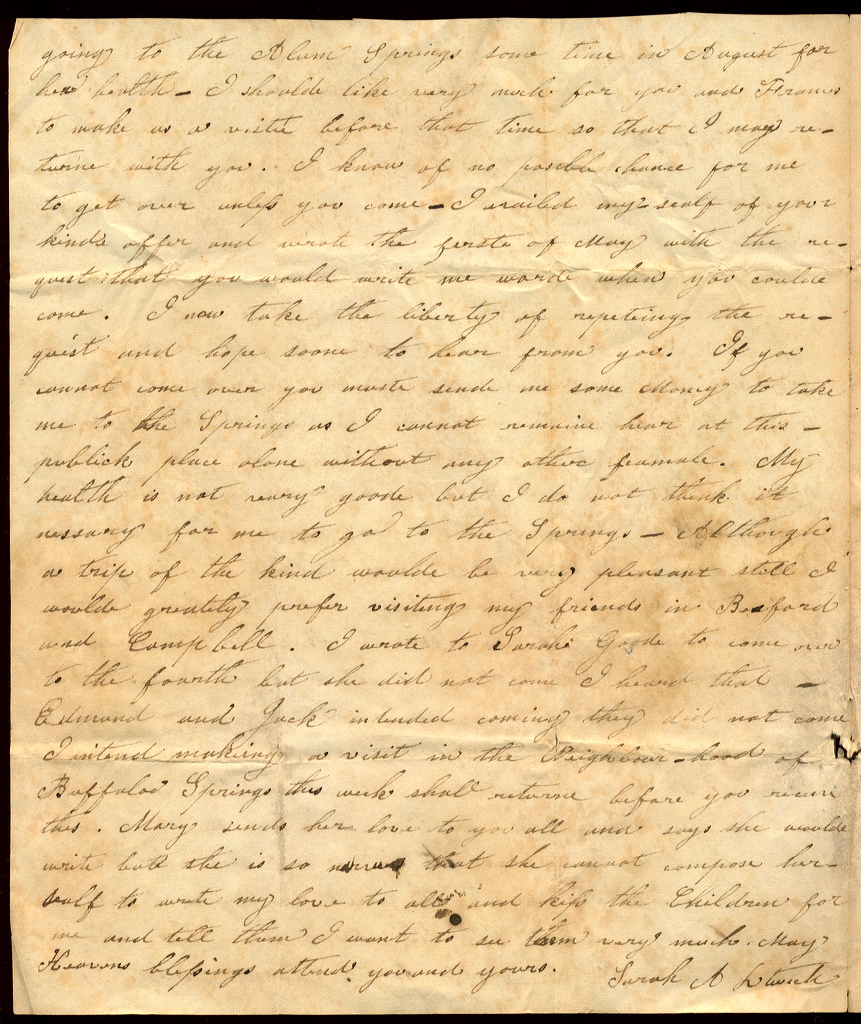 going to the Alum Springs some time in August for
her health – I shoulde like very much for you and Frances
to make us a visite before that time so that I may re-
turne with you. I know of no posible chance for me
to get over unless you come – I availed my-sealf of your
kinds offer and wrote the ferste of May with the re-
quest that you would write me worde when you coulde
come. I now take the liberty of repeteing the re-
quest and hope soone to hear from you. If you
cannot come over you muste sende me some Money to take
me to the Springs as I cannot remaine hear at this -
publick place alone without any other feamale. My
health is not veary goode but I do not think it
nessary for me to go to the Springs – Although
a trip of the kind woulde be very pleasant still I
woulde greately prefer visiting my friends in Bedford
and Campbell. I wrote to Sarah Goode to come over
to the fourth but she did not come I heard that -
Edmund and Jack intended coming they did not come
I intend making a visit in the Neighbour-hood of
Buffaloe Springs this week shall returne before you receive
this. Mary sends her love to you all and says she woulde
write bute she is so nervus that she cannot compose her-
sealf to write my love to all and kiss the Children for
me and tell them I want to see them very much. May
Heavens blessings attend you and yours.
Sarah A